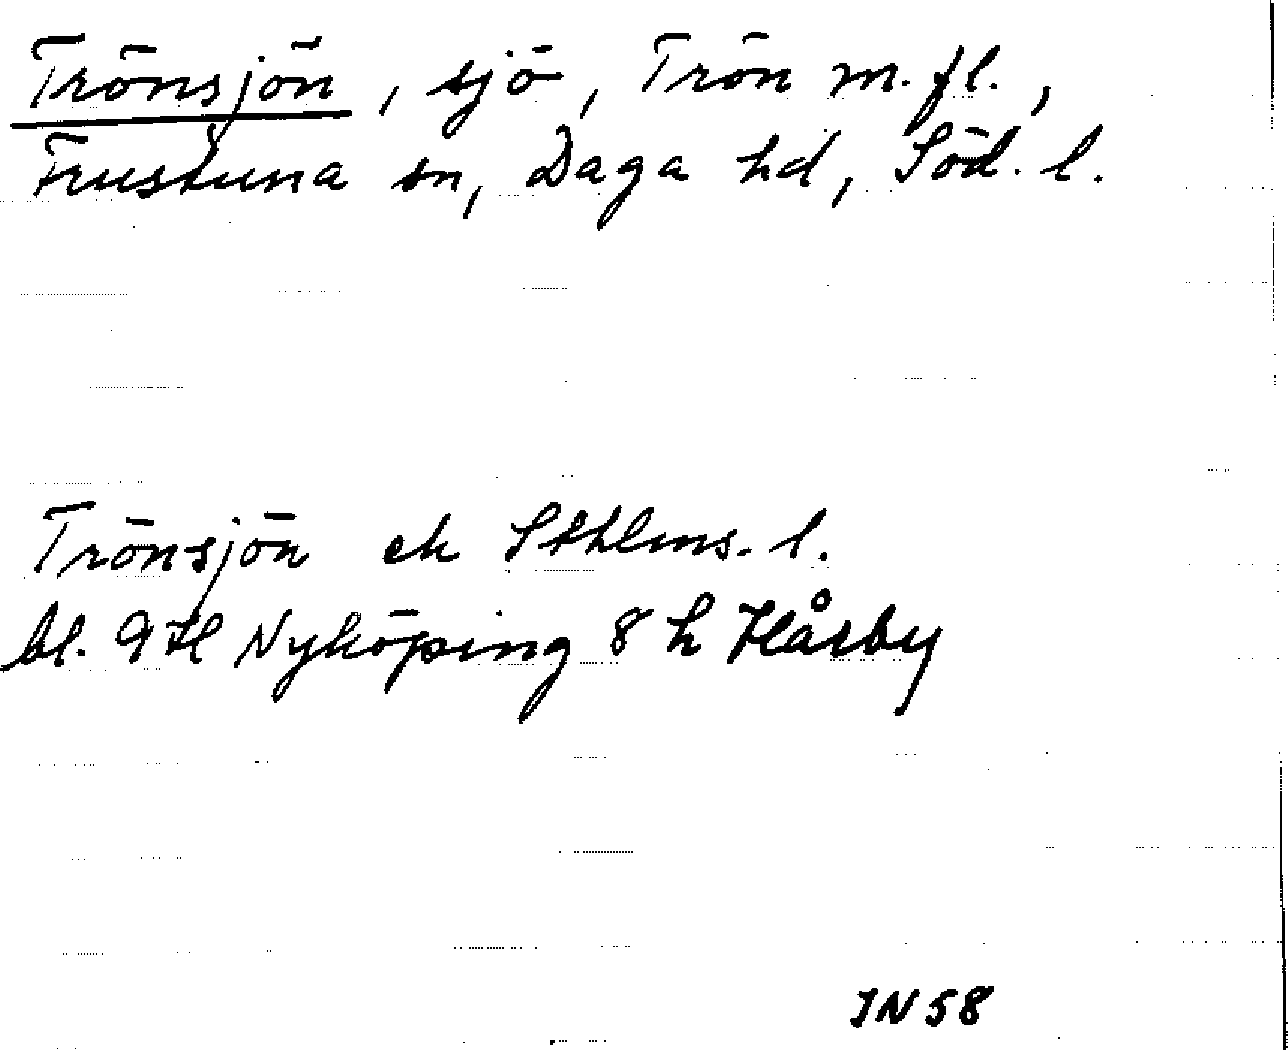 Trönsjön, sjö, Trön m. fl.,
Frustuna sn, Daga hd, Söd. l.
Trönsjön ek Sthlms. l.
bl. 9H Nyköping 8 h Hårby
JN 58